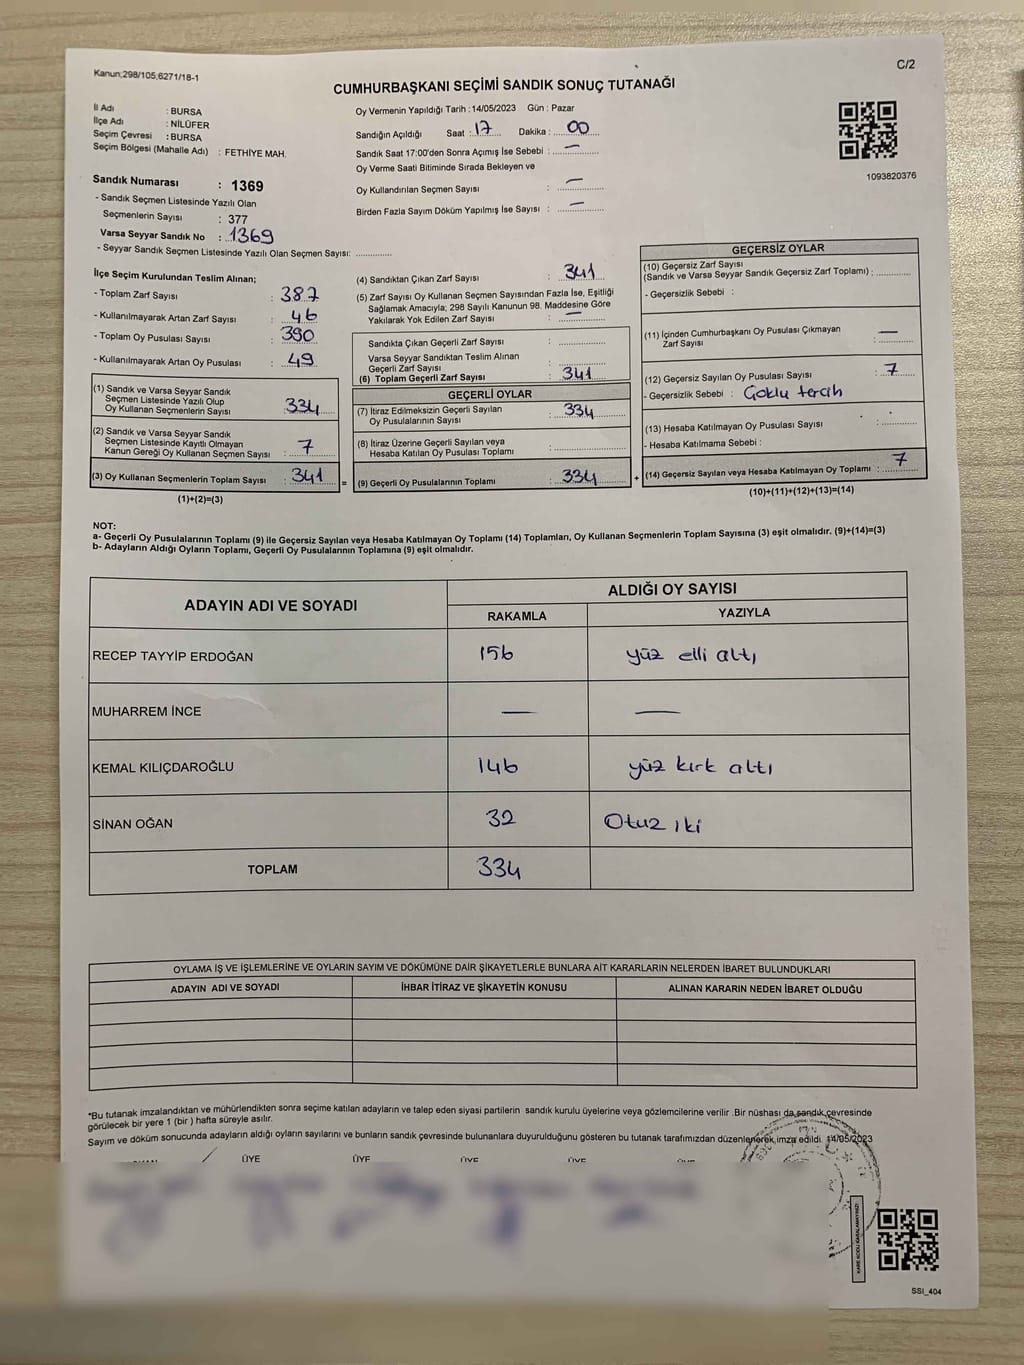 Kanun;298/105;6271/18-1
C/2
CUMHURBAŞKANI SEÇİMİ SANDIK SONUÇ TUTANAĞI
İl Adı : BURSA
İlçe Adı : NİLÜFER
Seçim Çevresi : BURSA
Seçim Bölgesi (Mahalle Adı) : FETHİYE MAH.
Oy Vermenin Yapıldığı Tarih : 14/05/2023 Gün : Pazar
Sandığın Açıldığı Saat : 17 Dakika : 00
Sandık Saat 17:00'den Sonra Açımış İse Sebebi : —
Oy Verme Saati Bitiminde Sırada Bekleyen ve
Oy Kullandırılan Seçmen Sayısı : —
Birden Fazla Sayım Döküm Yapılmış İse Sayısı : —
1093820376
Sandık Numarası : 1369
- Sandık Seçmen Listesinde Yazılı Olan
Seçmenlerin Sayısı : 377
Varsa Seyyar Sandık No : 1369
- Seyyar Sandık Seçmen Listesinde Yazılı Olan Seçmen Sayısı:
İlçe Seçim Kurulundan Teslim Alınan;
- Toplam Zarf Sayısı : 387
- Kullanılmayarak Artan Zarf Sayısı : 46
- Toplam Oy Pusulası Sayısı : 390
- Kullanılmayarak Artan Oy Pusulası : 49
(1) Sandık ve Varsa Seyyar Sandık
Seçmen Listesinde Yazılı Olup
Oy Kullanan Seçmenlerin Sayısı : 334
(2) Sandık ve Varsa Seyyar Sandık
Seçmen Listesinde Kayıtlı Olmayan
Kanun Gereği Oy Kullanan Seçmen Sayısı : 7
(3) Oy Kullanan Seçmenlerin Toplam Sayısı : 341
(1)+(2)=(3)
(4) Sandıktan Çıkan Zarf Sayısı : 341
(5) Zarf Sayısı Oy Kullanan Seçmen Sayısından Fazla İse, Eşitliği
Sağlamak Amacıyla; 298 Sayılı Kanunun 98. Maddesine Göre
Yakılarak Yok Edilen Zarf Sayısı : —
Sandıkta Çıkan Geçerli Zarf Sayısı :
Varsa Seyyar Sandıktan Teslim Alınan
Geçerli Zarf Sayısı :
(6) Toplam Geçerli Zarf Sayısı : 341
GEÇERLİ OYLAR
(7) İtiraz Edilmeksizin Geçerli Sayılan
Oy Pusulalarının Sayısı : 334
(8) İtiraz Üzerine Geçerli Sayılan veya
Hesaba Katılan Oy Pusulası Toplamı :
= (9) Geçerli Oy Pusulalarının Toplamı : 334 +
GEÇERSİZ OYLAR
(10) Geçersiz Zarf Sayısı
(Sandık ve Varsa Seyyar Sandık Geçersiz Zarf Toplamı) :
- Geçersizlik Sebebi :
(11) İçinden Cumhurbaşkanı Oy Pusulası Çıkmayan
Zarf Sayısı : —
(12) Geçersiz Sayılan Oy Pusulası Sayısı : 7
- Geçersizlik Sebebi : Çoklu tercih
(13) Hesaba Katılmayan Oy Pusulası Sayısı :
- Hesaba Katılmama Sebebi :
(14) Geçersiz Sayılan veya Hesaba Katılmayan Oy Toplamı : 7
(10)+(11)+(12)+(13)=(14)
NOT:
a- Geçerli Oy Pusulalarının Toplamı (9) ile Geçersiz Sayılan veya Hesaba Katılmayan Oy Toplamı (14) Toplamları, Oy Kullanan Seçmenlerin Toplam Sayısına (3) eşit olmalıdır. (9)+(14)=(3)
b- Adayların Aldığı Oyların Toplamı, Geçerli Oy Pusulalarının Toplamına (9) eşit olmalıdır.
ADAYIN ADI VE SOYADI
ALDIĞI OY SAYISI
RAKAMLA YAZIYLA
RECEP TAYYİP ERDOĞAN 156 yüz elli altı
MUHARREM İNCE — —
KEMAL KILIÇDAROĞLU 146 yüz kırk altı
SİNAN OĞAN 32 Otuz iki
TOPLAM 334
OYLAMA İŞ VE İŞLEMLERİNE VE OYLARIN SAYIM VE DÖKÜMÜNE DAİR ŞİKAYETLERLE BUNLARA AİT KARARLARIN NELERDEN İBARET BULUNDUKLARI
ADAYIN ADI VE SOYADI İHBAR İTİRAZ VE ŞİKAYETİN KONUSU ALINAN KARARIN NEDEN İBARET OLDUĞU
*Bu tutanak imzalandıktan ve mühürlendikten sonra seçime katılan adayların ve talep eden siyasi partilerin sandık kurulu üyelerine veya gözlemcilerine verilir .Bir nüshası da sandık çevresinde
görülecek bir yere 1 (bir ) hafta süreyle asılır.
Sayım ve döküm sonucunda adayların aldığı oyların sayılarını ve bunların sandık çevresinde bulunanlara duyurulduğunu gösteren bu tutanak tarafımızdan düzenlenerek imza edildi. 14/05/2023
ÜYE ÜYE ÜYE ÜYE
KARE KODU KARALAMAYINIZ!
SSI_404